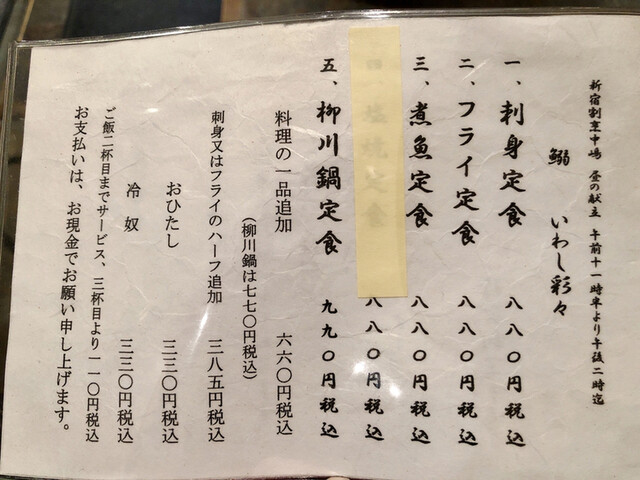 新宿割烹中嶋　昼の献立　午前十一時半より午後二時迄
鰯　いわし彩々
一、刺身定食　八八〇円税込
二、フライ定食　八八〇円税込
三、煮魚定食　八八〇円税込
四、塩焼定食　八八〇円税込
五、柳川鍋定食　九九〇円税込
料理の一品追加　六六〇円税込
（柳川鍋は七七〇円税込）
刺身又はフライのハーフ追加　三八五円税込
おひたし　三三〇円税込
冷奴　三三〇円税込
ご飯二杯目までサービス、三杯目より一一〇円税込
お支払いは、お現金でお願い申し上げます。